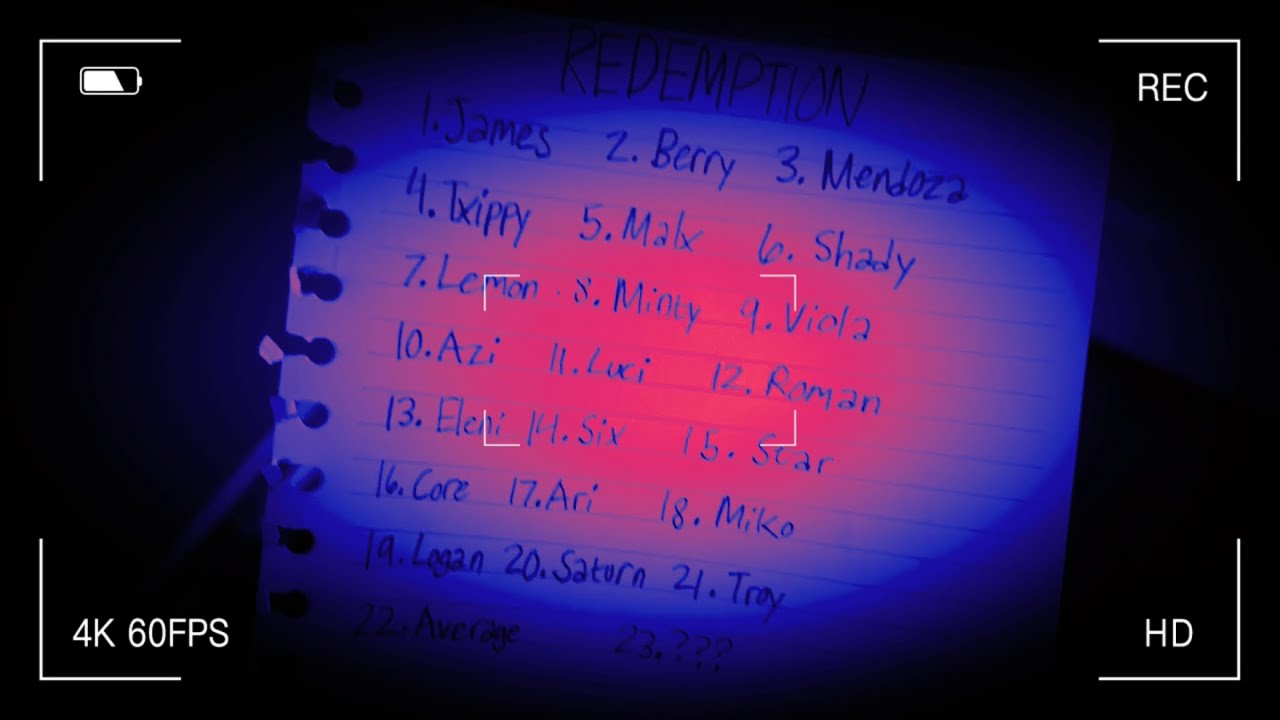 REDEMPTION
REC
1. James 2. Berry 3. Mendoza
4. Txippy 5. Malx 6. Shady
7. Lemon 8. Minty 9. Viola
10. Azi 11. Luci 12. Roman
13. Eleni 14. Six 15. Star
16. Core 17. Ari 18. Miko
19. Logan 20. Saturn 21. Troy
22. Average 23. ???
4K 60FPS HD